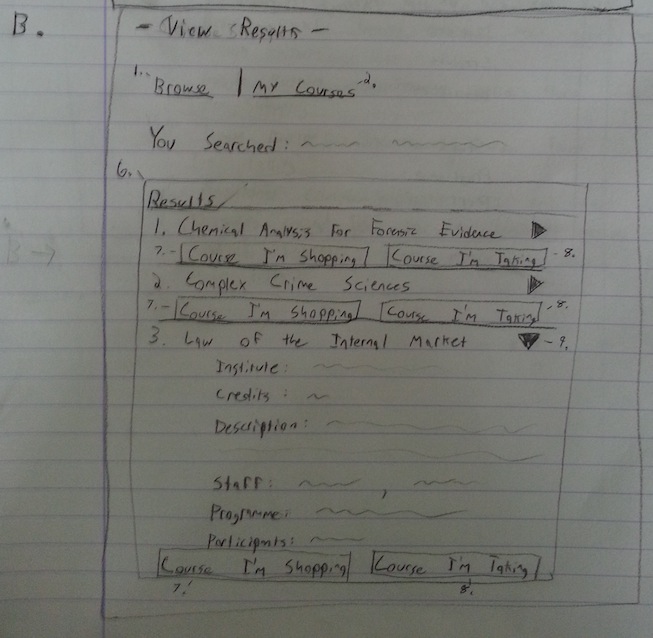 B.
- View Results -
1. Browse | My Courses 2.
You Searched:
6.
Results
1. Chemical Analysis For Forensic Evidence
7. - Course I'm Shopping Course I'm Taking - 8.
2. Complex Crime Sciences
7. - Course I'm Shopping Course I'm Taking - 8.
3. Law of the Internal Market - 9.
Institute:
Credits:
Description:
Staff: ,
Programme:
Participants:
Course I'm Shopping Course I'm Taking
7. 8.